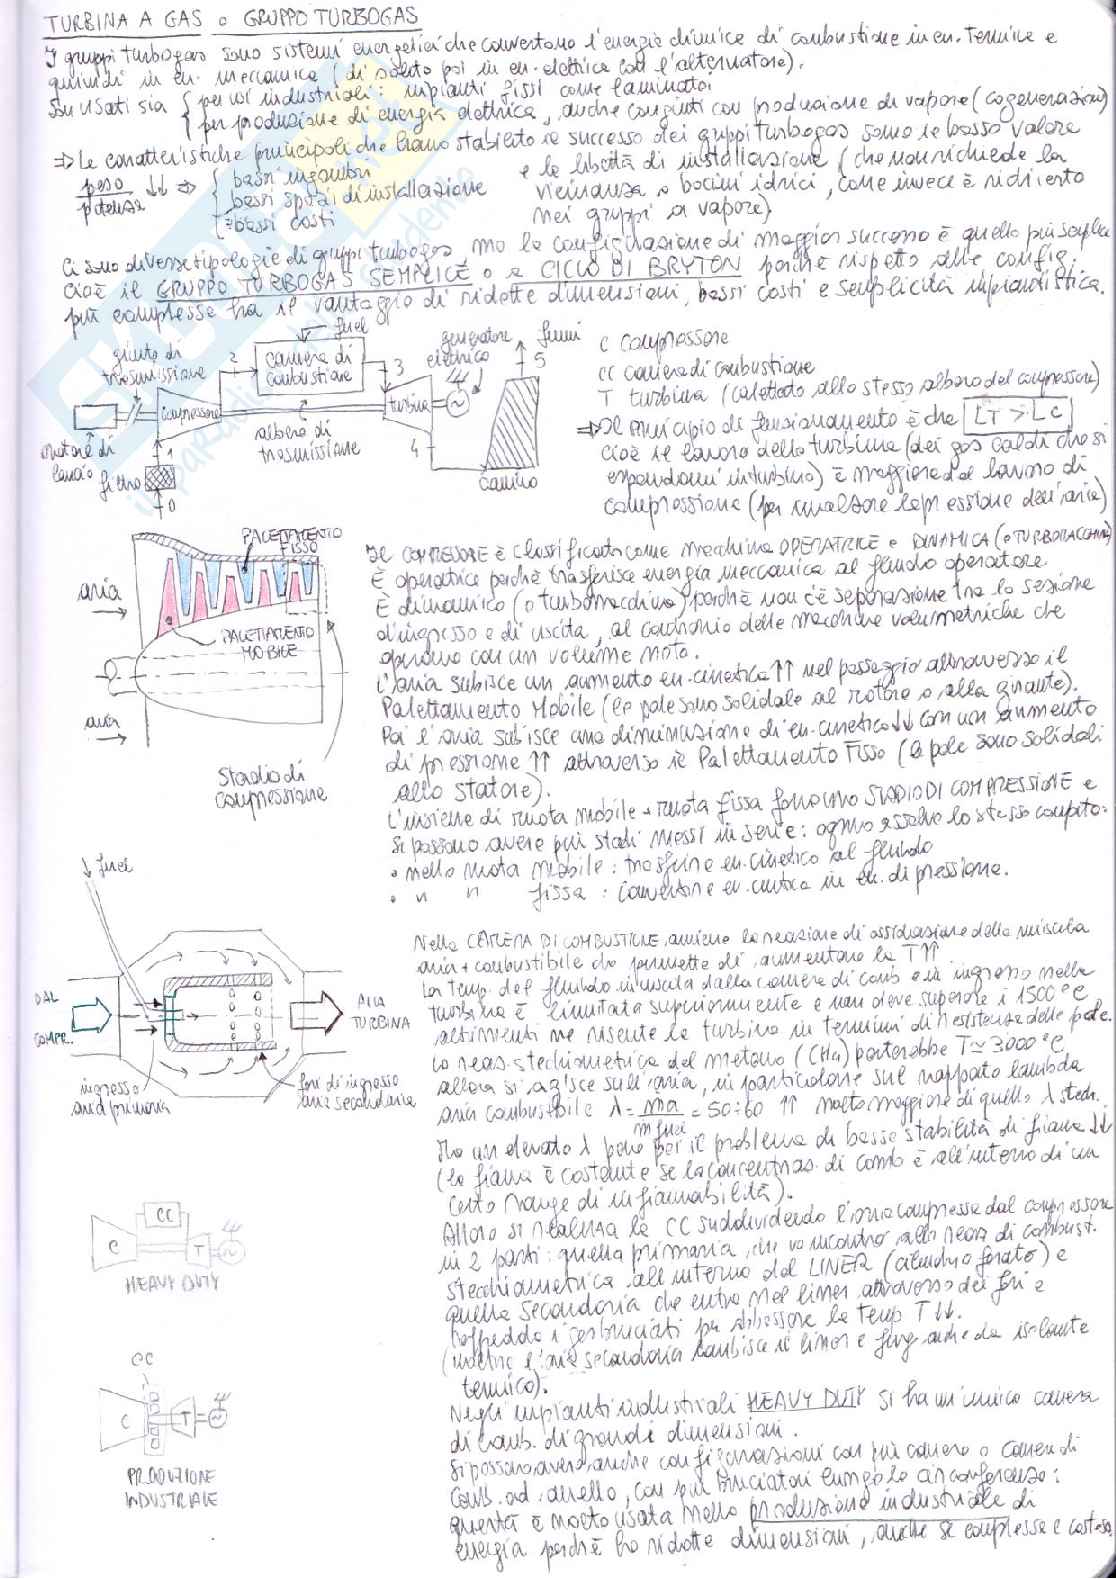 TURBINA A GAS o GRUPPO TURBOGAS
I gruppi turbogas sono sistemi energetici che convertono l'energia chimica di combustione in en. termica e
quindi in en. meccanica (di solito poi in en. elettrica con l'alternatore).
Son usati sia { per usi industriali: impianti fissi come laminatoi
per produzione di energia elettrica, anche congiunti con produzione di vapore (cogenerazione)
⇒ Le caratteristiche principali che hanno stabilito il successo dei gruppi turbogas sono il basso valore
peso/potenza ↓↓ ⇒ { bassi ingombri
bassi spazi di installazione
bassi costi
e la libertà di installazione (che non richiede la
vicinanza a bacini idrici, come invece è richiesto
nei gruppi a vapore)
Ci sono diverse tipologie di gruppi turbogas, ma la configurazione di maggior successo è quella più semplice
cioè il GRUPPO TURBOGAS SEMPLICE o a CICLO DI BRYTON poiché rispetto alle config.
più complesse ha il vantaggio di ridotte dimensioni, bassi costi e semplicità impiantistica.
giunto di trasmissione
2
fuel
camera di combustione
3
generatore elettrico
fumi
5
motore di lancio
compressore
albero di trasmissione
turbina
4
1
filtro
0
camino
C compressore
CC camera di combustione
T turbina (calettata allo stesso albero del compressore)
⇒ Il principio di funzionamento è che LT > LC
cioè il lavoro della turbina (dei gas caldi che si
espandono in turbina) è maggiore del lavoro di
compressione (per innalzare la pressione dell'aria)
PALETTAMENTO FISSO
aria
PALETTAMENTO MOBILE
aria
Stadio di compressione
Il COMPRESSORE è classificato come macchina OPERATRICE e DINAMICA (o TURBOMACCHINA)
È operatrice perché trasferisce energia meccanica al fluido operatore.
È dinamico (o turbomacchina) perché non c'è separazione tra la sezione
d'ingresso e di uscita, al contrario delle macchine volumetriche che
operano con un volume noto.
L'aria subisce un aumento en. cinetica ↑↑ nel passaggio attraverso il
Palettamento Mobile (le pale sono solidale al rotore o alla girante).
Poi l'aria subisce una diminuzione di en. cinetica ↓↓ con un aumento
di pressione ↑↑ attraverso il Palettamento Fisso (le pale sono solidali
allo statore).
L'insieme di ruota mobile + ruota fissa fanno uno STADIO DI COMPRESSIONE e
si possono avere più stadi messi in serie: ognuno assolve lo stesso compito:
• nella ruota mobile: trasferire en. cinetica al fluido
• " " fissa: convertire en. cinetica in en. di pressione.
fuel
DAL COMPR...
ALLA TURBINA
ingresso aria primaria
fori di ingresso aria secondaria
Nella CAMERA DI COMBUSTIONE avviene la reazione di ossidazione della miscela
aria + combustibile che permette di aumentare la T↑↑
La temp. del fluido in uscita dalla camera di comb e in ingresso nella
turbina è limitata superiormente e non deve superare i 1500 °C
altrimenti ne risente la turbina in termini di resistenza delle pale.
La reaz. stechiometrica del metano (CH4) porterebbe T≃3000 °C
allora si agisce sull'aria, in particolare sul rapporto lambda
aria combustibile λ = ma/mfuel = 50÷60 ↑↑ molto maggiore di quello λ stech.
Ma un elevato λ pone per il problema di bassa stabilità di fiamma ↓↓
(la fiamma è costante se la concentraz. di comb è all'interno di un
certo range di infiammabilità).
Allora si realizza la CC suddividendo l'aria compressa dal compressore
in 2 parti: quella primaria, che va incontro alla reaz di combust.
stechiometrica all'interno del LINER (cilindro forato) e
quella secondaria che entra nel liner attraverso dei fori e
raffredda i gas bruciati per abbassare la temp T↓↓.
(inoltre l'aria secondaria lambisce il liner e funge anche da isolante
termico).
Negli impianti industriali HEAVY DUTY si ha un'unica camera
di comb. di grandi dimensioni.
Si possono avere anche configurazioni con più camere o camera di
comb. ad anello, con più bruciatori lungo la circonferenza:
questa è molto usata nella produzione industriale di
energia perché ha ridotte dimensioni, anche se complessa e costosa
CC
C
T
HEAVY DUTY
CC
C
T
PRODUZIONE INDUSTRIALE